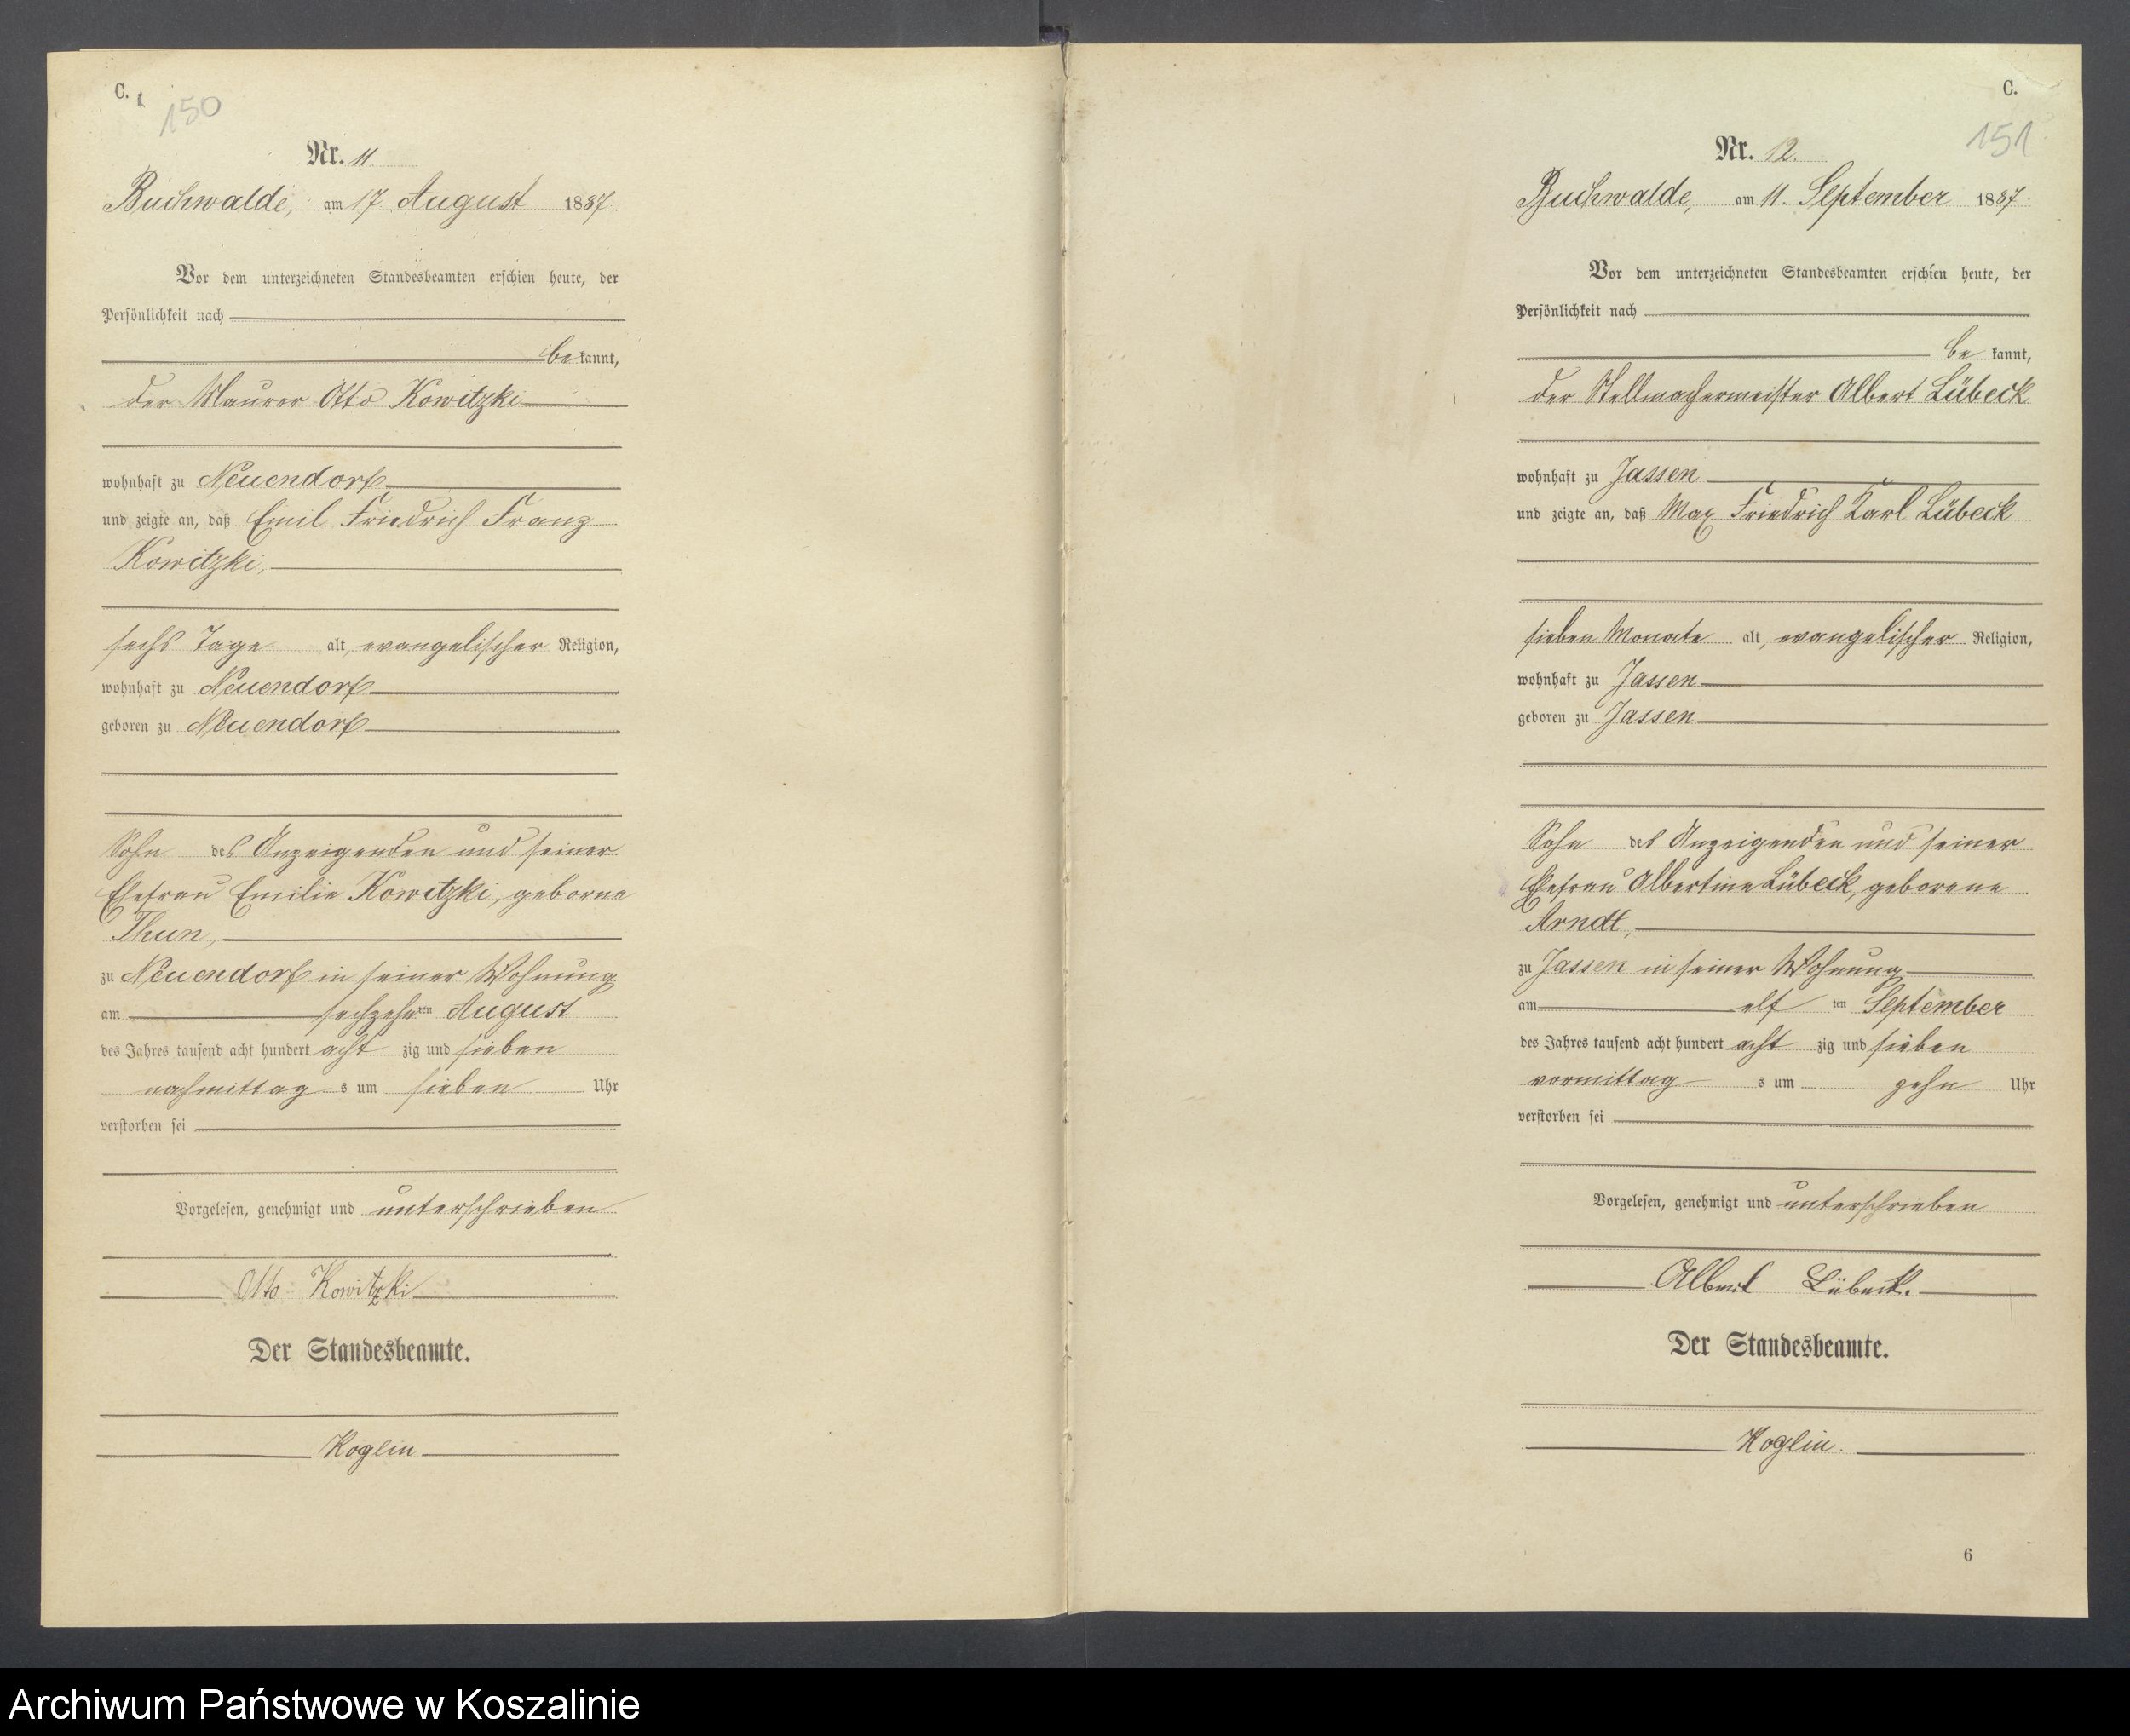 C.
150
Nr. 11
Buchwalde, am 17 August 1887
Vor dem unterzeichneten Standesbeamten erschien heute, der
Persönlichkeit nach
be kannt,
der Maurer Otto Kowitzki
wohnhaft zu Neuendorf
und zeigte an, daß Emil Friedrich Franz
Kowitzki,
sechs Tage alt, evangelischer Religion,
wohnhaft zu Neuendorf
geboren zu Neuendorf
Sohn des Anzeigenden und seiner
Ehefrau Emilie Kowitzki, geborne
Thun,
zu Neuendorf in seiner Wohnung
am sechzehnten August
des Jahres tausend acht hundert acht zig und sieben
nachmittag s um sieben Uhr
verstorben sei
Vorgelesen, genehmigt und unterschrieben
Otto Kowitzki
Der Standesbeamte.
Koglin
C.
151
Nr. 12.
Buchwalde, am 11. September 1887
Vor dem unterzeichneten Standesbeamten erschien heute, der
Persönlichkeit nach
be kannt,
der Stellmachermeister Albert Lübeck
wohnhaft zu Jassen
und zeigte an, daß Max Friedrich Karl Lübeck
sieben Monate alt, evangelischer Religion,
wohnhaft zu Jassen
geboren zu Jassen
Sohn des Anzeigenden und seiner
Ehefrau Albertine Lübeck, geborene
Arndt,
zu Jassen in seiner Wohnung
am elf ten September
des Jahres tausend acht hundert acht zig und sieben
vormittag s um zehn Uhr
verstorben sei
Vorgelesen, genehmigt und unterschrieben
Albert Lübeck.
Der Standesbeamte.
Koglin.
6
Archiwum Państwowe w Koszalinie